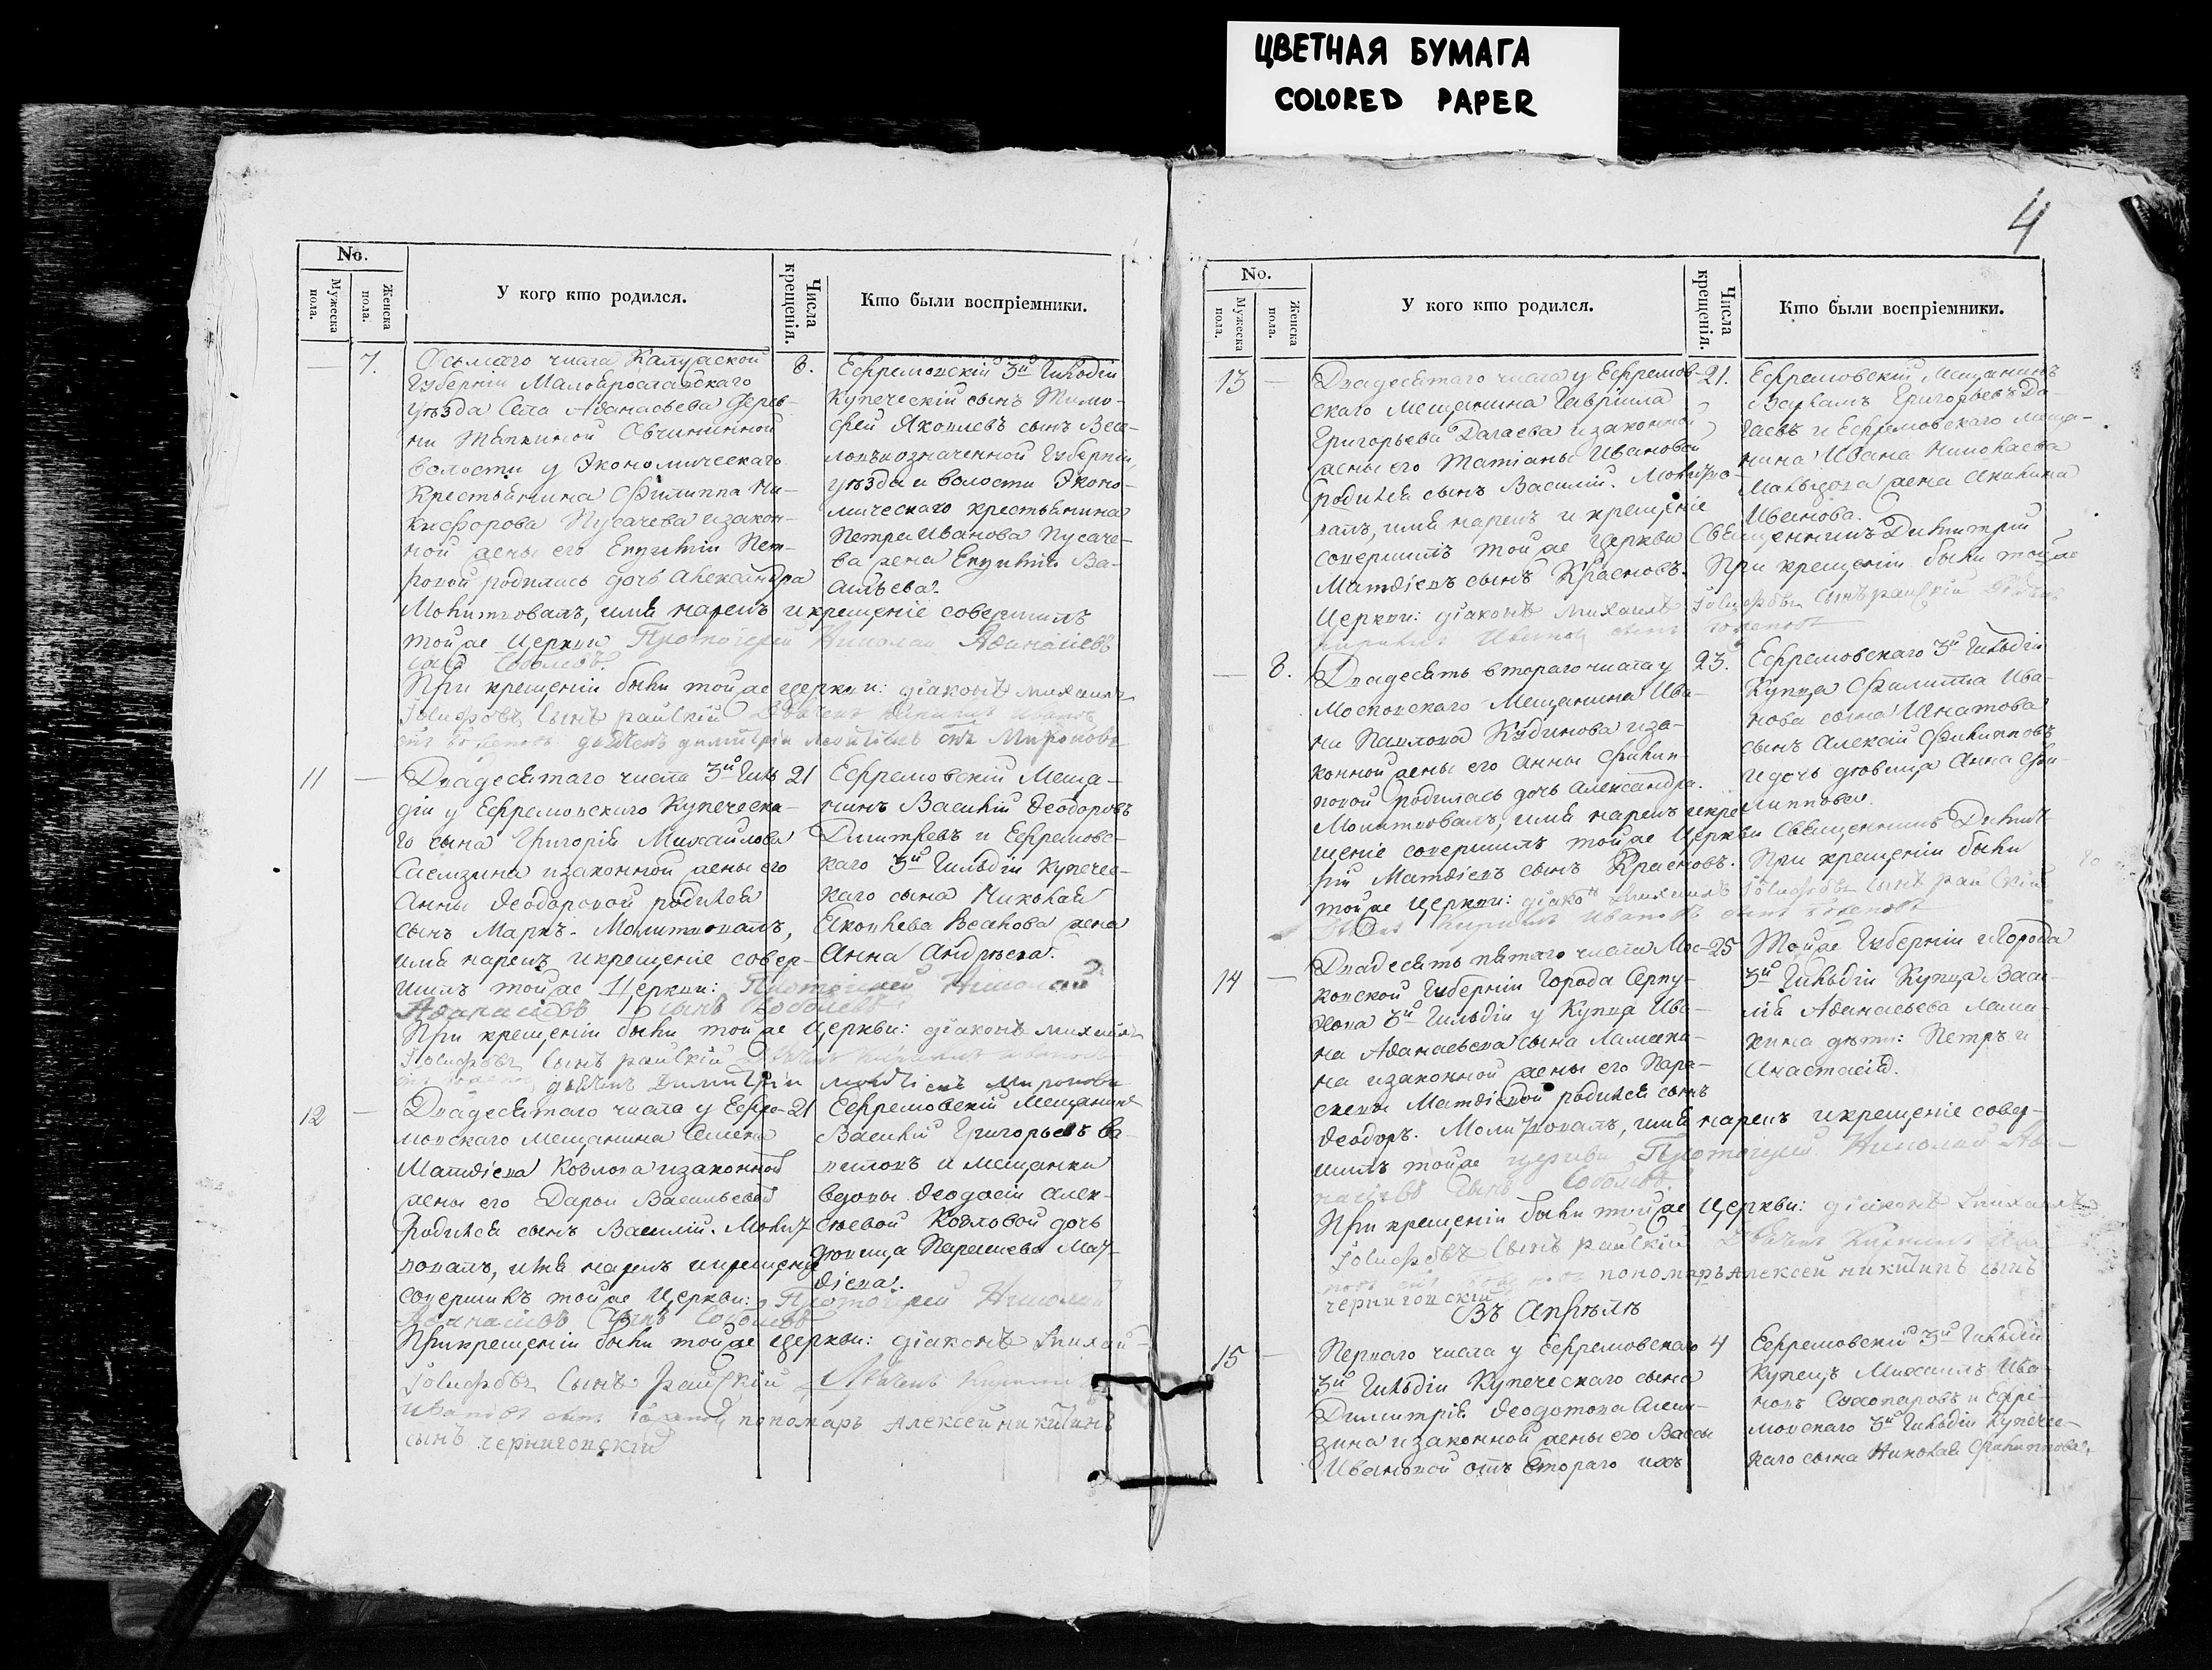 ЦВЕТНАЯ БУМАГА
COLORED PAPER
4
No.
Мужеска пола.
Женска пола.
У кого кто родился.
Числа крещенія.
Кто были воспріемники.
— 7.
Осьмаго числа Калужской
Губерніи Малоярославскаго
уѣзда Села Аѳанасьева дерев-
ни Овчининной
волости у Экономическаго
Крестьянина Филиппа Ни-
кифорова Пусачева и закон-
ной жены его Евгеніи Пет-
ровой родилась дочь Александра
Молитвовалъ, имя нарекъ и крещеніе совершилъ
той же Церкви Протоіерей Николай Аѳанасіевъ
сынъ Соболевъ.
При крещеніи были той же церкви: діаконъ михаилъ
Іосифовъ сынъ райскій Дьячекъ кириллъ ивановъ
дьячекъ димитрій матѳіевъ сынъ Мироновъ
8.
Ефремовскій 3й Гильдіи
Купеческій сынъ Тимо-
фей Яковлевъ сынъ
означенной Губерніи,
уѣзда и волости Эконо-
мическаго крестьянина
Петра Иванова Пусаче-
ва жена Евгенія Ва-
сильева.
11 —
Двадесятаго числа 3й Гиль
діи у Ефремовскаго Купеческа-
го сына Григорія Михайлова
Саемзина и законной жены его
Анны Ѳеодоровой родился
сынъ Маркъ. Молитвовалъ,
имя нарекъ и крещеніе совер-
шилъ той же Церкви: Протоіерей Николай
Аѳанасіевъ сынъ Соболевъ
При крещеніи были той же Церкви: діаконъ михаилъ
Іосифовъ сынъ райскій Дьячекъ кириллъ ивановъ
дьячекъ Димитрій матѳіевъ Мироновъ
21
Ефремовскій Меща-
нинъ Василій Ѳеодоровъ
Дмитревъ и Ефремовс-
каго 3й Гильдіи Купечес-
каго сына Николая
Яковлева жена
Анна Андреева.
12 —
Двадесятаго числа у Ефре-
мовскаго мещанина Семена
Матѳіева Козлова и законной
жены его Дарьи Васильевой
родился сынъ Василій. Молит
вовалъ, имя нарекъ и крещеніе
совершилъ той же Церкви: Протоіерей Николай
Аѳанасіевъ сынъ Соболевъ
При крещеніи были той же церкви: діаконъ михаи-
Іосифовъ сынъ райскій Дьячекъ Кириллъ
Ивановъ сынъ пономарь Алексей никитинъ
сынъ черниговскій
21
Ефремовскій Мещанинъ
Василій Григорьевъ
и мещанки
вдовы Ѳеодосіи Алек-
сѣевой Козловой дочь
девица Парасиева Мат-
ѳіева.
No.
Мужеска пола.
Женска пола.
У кого кто родился.
Числа крещенія.
Кто были воспріемники.
13 —
Двадесятаго числа у Ефремов-
скаго Мещанина Гавріила
Григорьева Дагаева и законной
жены его Татіаны Ивановой
родился сынъ Василій. Молитво-
валъ, имя нарекъ и крещеніе
совершилъ той же Церкви Священникъ Димитрій
Матѳіевъ сынъ Красновъ. При крещеніи были той же
Церкви: діаконъ михаилъ Іосифовъ сынъ райскій
21.
Ефремовскій Мещанинъ
Варламъ Григорьевъ Да-
гаевъ и Ефремовскаго меща-
нина Ивана Николаева
жена Акилина
Иванова.
— 8.
Двадесять втораго числа у
Московскаго Мещанина Ива-
на Павлова Кудинова и за-
конной жены его Анны Филип-
повой родилась дочь Александра.
Молитвовалъ, имя нарекъ и кре-
щеніе совершилъ той же Церкви Священникъ Димит-
рій Матѳіевъ сынъ Красновъ. При крещеніи были
той же церкви: діаконъ михаилъ Іосифовъ сынъ райскій
23.
Ефремовскаго 3й Гильдіи
Купца Филиппа Ива-
нова сына Игнатова
сынъ Алексій Филипповъ
и дочь девица Анна Фи-
липпова.
14 —
Двадесять пятаго числа Мос-
ковской Губерніи Города Серпу-
хова 3й Гильдіи у Купца Ива-
на Аѳанасьева сына Ламаки-
на и законной жены его Пара-
скевы Матѳіевой родился сынъ
Ѳеодоръ. Молитвовалъ, имя нарекъ и крещеніе совер-
шилъ той же церкви Протоіерей Николай Аѳа-
насіевъ сынъ Соболевъ.
При крещеніи были той же Церкви: діаконъ михаилъ
Іосифовъ сынъ райскій Дьячекъ Кириллъ Ива
новъ сынъ пономарь Алексей никитинъ сынъ
черниговскій
25
Той же Губерніи и Города
3й Гильдіи Купца Васи-
лія Аѳанасьева Лама-
кина дѣти: Петръ и
Анастасія.
Въ Апрѣлѣ
15 —
Перваго числа у Ефремовскаго
3й Гильдіи Купеческаго сына
Димитрія Ѳеодотова Саем-
зина и законной жены его Вассы
Ивановой отъ втораго ихъ
4
Ефремовскій 3й Гильдіи
Купецъ Михаилъ Ива-
новъ Сухопаровъ и Ефре-
мовскаго 3й Гильдіи Купечес-
каго сына Николая Филиппова